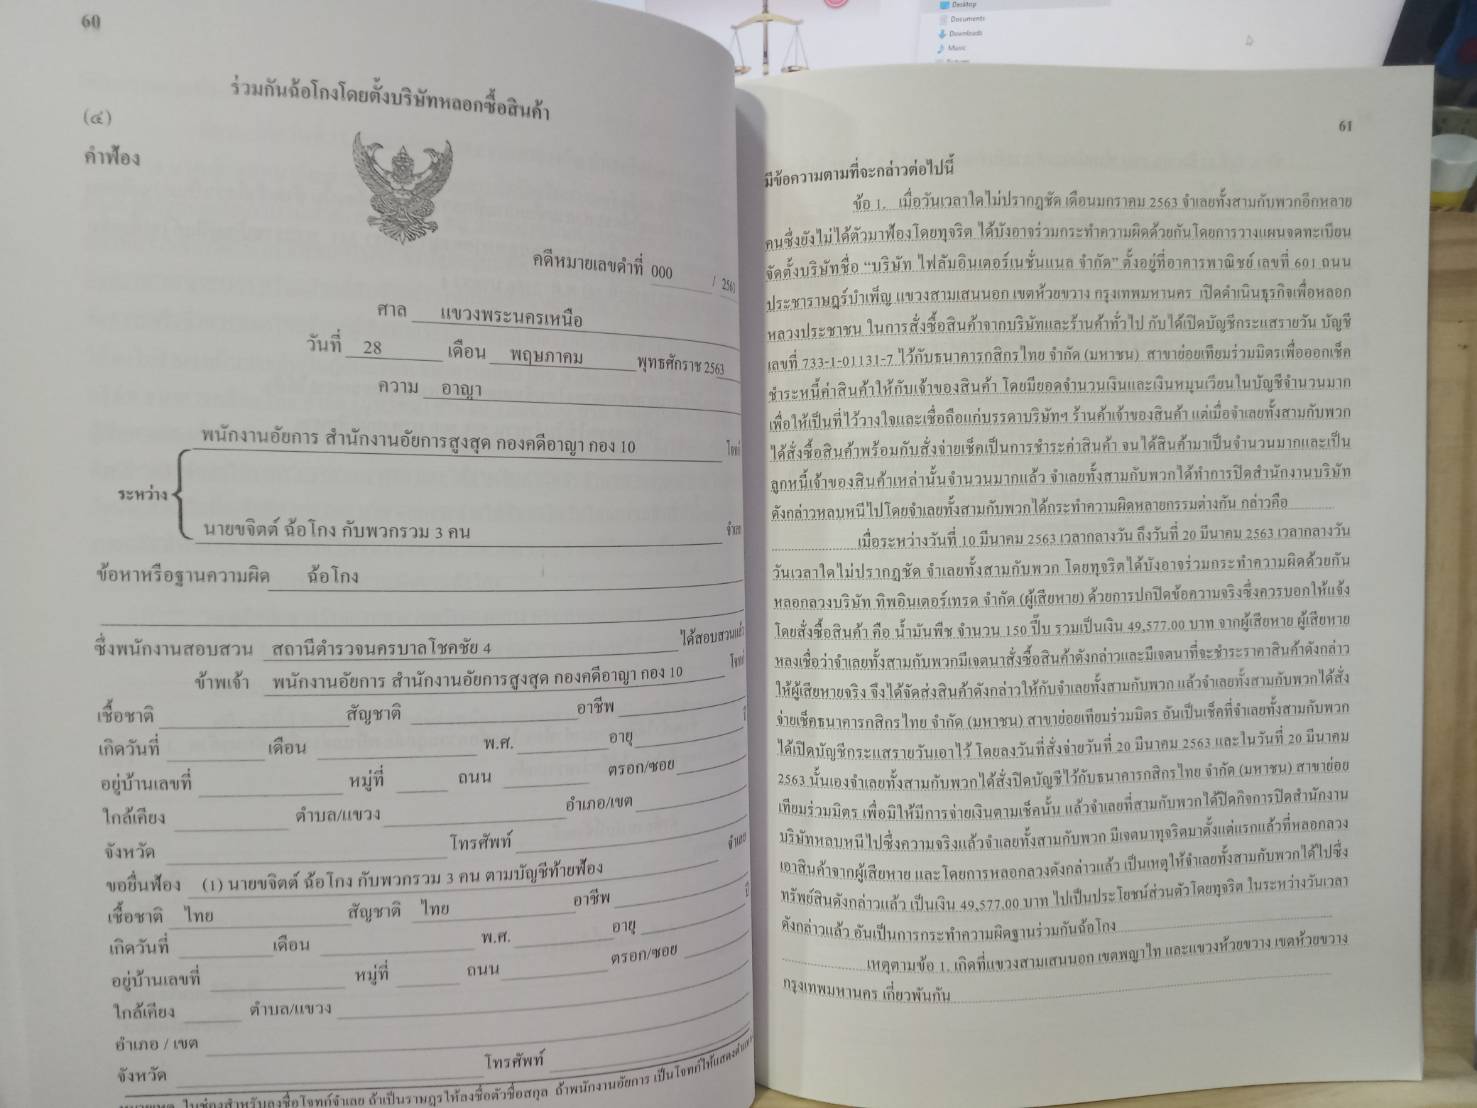 60
ร่วมกันฉ้อโกงโดยตั้งบริษัทหลอกซื้อสินค้า
(๔)
คำฟ้อง
คดีหมายเลขดำที่ 000 / 2563
ศาล แขวงพระนครเหนือ
วันที่ 28 เดือน พฤษภาคม พุทธศักราช 2563
ความ อาญา
พนักงานอัยการ สำนักงานอัยการสูงสุด กองคดีอาญา กอง 10 โจทก์
ระหว่าง
นายขจิตต์ ฉ้อโกง กับพวกรวม 3 คน จำเลย
ข้อหาหรือฐานความผิด ฉ้อโกง
ซึ่งพนักงานสอบสวน สถานีตำรวจนครบาลโชคชัย 4 ได้สอบสวนแล้ว
ข้าพเจ้า พนักงานอัยการ สำนักงานอัยการสูงสุด กองคดีอาญา กอง 10 โจทก์
เชื้อชาติ สัญชาติ อาชีพ
เกิดวันที่ เดือน พ.ศ. อายุ ปี
อยู่บ้านเลขที่ หมู่ที่ ถนน ตรอก/ซอย
ใกล้เคียง ตำบล/แขวง อำเภอ/เขต
จังหวัด โทรศัพท์
ขอยื่นฟ้อง (1) นายขจิตต์ ฉ้อโกง กับพวกรวม 3 คน ตามบัญชีท้ายฟ้อง จำเลย
เชื้อชาติ ไทย สัญชาติ ไทย อาชีพ
เกิดวันที่ เดือน พ.ศ. อายุ ปี
อยู่บ้านเลขที่ หมู่ที่ ถนน ตรอก/ซอย
ใกล้เคียง ตำบล/แขวง
อำเภอ / เขต
จังหวัด โทรศัพท์
หมายเหตุ ในช่องสำหรับลงชื่อโจทก์จำเลย ถ้าเป็นราษฎรให้ลงชื่อตัวชื่อสกุล ถ้าพนักงานอัยการ เป็นโจทก์ให้แสดงตำแหน่ง
Desktop
Documents
Downloads
Music
61
มีข้อความตามที่จะกล่าวต่อไปนี้
ข้อ 1. เมื่อวันเวลาใดไม่ปรากฏชัด เดือนมกราคม 2563 จำเลยทั้งสามกับพวกอีกหลาย
คนซึ่งยังไม่ได้ตัวมาฟ้องโดยทุจริต ได้บังอาจร่วมกระทำความผิดด้วยกันโดยการวางแผนจดทะเบียน
จัดตั้งบริษัทชื่อ “บริษัท ไฟลัมอินเตอร์เนชั่นแนล จำกัด” ตั้งอยู่ที่อาคารพาณิชย์ เลขที่ 601 ถนน
ประชาราษฎร์บำเพ็ญ แขวงสามเสนนอก เขตห้วยขวาง กรุงเทพมหานคร เปิดดำเนินธุรกิจเพื่อหลอก
หลวงประชาชน ในการสั่งซื้อสินค้าจากบริษัทและร้านค้าทั่วไป กับได้เปิดบัญชีกระแสรายวัน บัญชี
เลขที่ 733-1-01131-7 ไว้กับธนาคารกสิกรไทย จำกัด (มหาชน) สาขาย่อยเทียมร่วมมิตรเพื่อออกเช็ค
ชำระหนี้ค่าสินค้าให้กับเจ้าของสินค้า โดยมียอดจำนวนเงินและเงินหมุนเวียนในบัญชีจำนวนมาก
เพื่อให้เป็นที่ไว้วางใจและเชื่อถือแก่บรรดาบริษัทฯ ร้านค้าเจ้าของสินค้า แต่เมื่อจำเลยทั้งสามกับพวก
ได้สั่งซื้อสินค้าพร้อมกับสั่งจ่ายเช็คเป็นการชำระค่าสินค้า จนได้สินค้ามาเป็นจำนวนมากและเป็น
ลูกหนี้เจ้าของสินค้าเหล่านั้นจำนวนมากแล้ว จำเลยทั้งสามกับพวกได้ทำการปิดสำนักงานบริษัท
ดังกล่าวหลบหนีไปโดยจำเลยทั้งสามกับพวกได้กระทำความผิดหลายกรรมต่างกัน กล่าวคือ
เมื่อระหว่างวันที่ 10 มีนาคม 2563 เวลากลางวัน ถึงวันที่ 20 มีนาคม 2563 เวลากลางวัน
วันเวลาใดไม่ปรากฏชัด จำเลยทั้งสามกับพวก โดยทุจริตได้บังอาจร่วมกระทำความผิดด้วยกัน
หลอกลวงบริษัท ทิพอินเตอร์เทรด จำกัด (ผู้เสียหาย) ด้วยการปกปิดข้อความจริงซึ่งควรบอกให้แจ้ง
โดยสั่งซื้อสินค้า คือ น้ำมันพืช จำนวน 150 ปี๊บ รวมเป็นเงิน 49,577.00 บาท จากผู้เสียหาย ผู้เสียหาย
หลงเชื่อว่าจำเลยทั้งสามกับพวกมีเจตนาสั่งซื้อสินค้าดังกล่าวและมีเจตนาที่จะชำระราคาสินค้าดังกล่าว
ให้ผู้เสียหายจริง จึงได้จัดส่งสินค้าดังกล่าวให้กับจำเลยทั้งสามกับพวก แล้วจำเลยทั้งสามกับพวกได้สั่ง
จ่ายเช็คธนาคารกสิกรไทย จำกัด (มหาชน) สาขาย่อยเทียมร่วมมิตร อันเป็นเช็คที่จำเลยทั้งสามกับพวก
ได้เปิดบัญชีกระแสรายวันเอาไว้ โดยลงวันที่สั่งจ่ายวันที่ 20 มีนาคม 2563 และในวันที่ 20 มีนาคม
2563 นั้นเองจำเลยทั้งสามกับพวกได้สั่งปิดบัญชีไว้กับธนาคารกสิกรไทย จำกัด (มหาชน) สาขาย่อย
เทียมร่วมมิตร เพื่อมิให้มีการจ่ายเงินตามเช็คนั้น แล้วจำเลยที่สามกับพวกได้ปิดกิจการปิดสำนักงาน
บริษัทหลบหนีไปซึ่งความจริงแล้วจำเลยทั้งสามกับพวก มีเจตนาทุจริตมาตั้งแต่แรกแล้วที่หลอกลวง
เอาสินค้าจากผู้เสียหาย และโดยการหลอกลวงดังกล่าวแล้ว เป็นเหตุให้จำเลยทั้งสามกับพวกได้ไปซึ่ง
ทรัพย์สินดังกล่าวแล้ว เป็นเงิน 49,577.00 บาท ไปเป็นประโยชน์ส่วนตัวโดยทุจริต ในระหว่างวันเวลา
ดังกล่าวแล้ว อันเป็นการกระทำความผิดฐานร่วมกันฉ้อโกง
เหตุตามข้อ 1. เกิดที่แขวงสามเสนนอก เขตพญาไท และแขวงห้วยขวาง เขตห้วยขวาง
กรุงเทพมหานคร เกี่ยวพันกัน